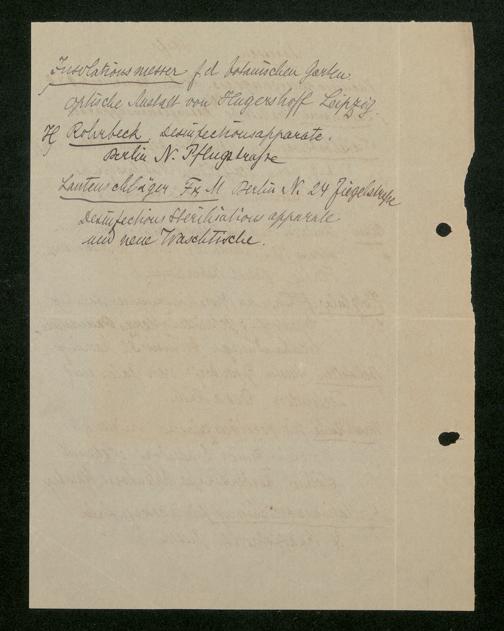 Insolationsmesser f d botanischen Garten
optische Anstalt von Hugershoff Leipzig.
H Rohrbeck Desinfectionsapparate.
Berlin N. Pflugstraße
Lautenschläger Fr M Berlin N. 24 Ziegelstraße
Desinfections Sterilisations apparate
und neue Waschtische.